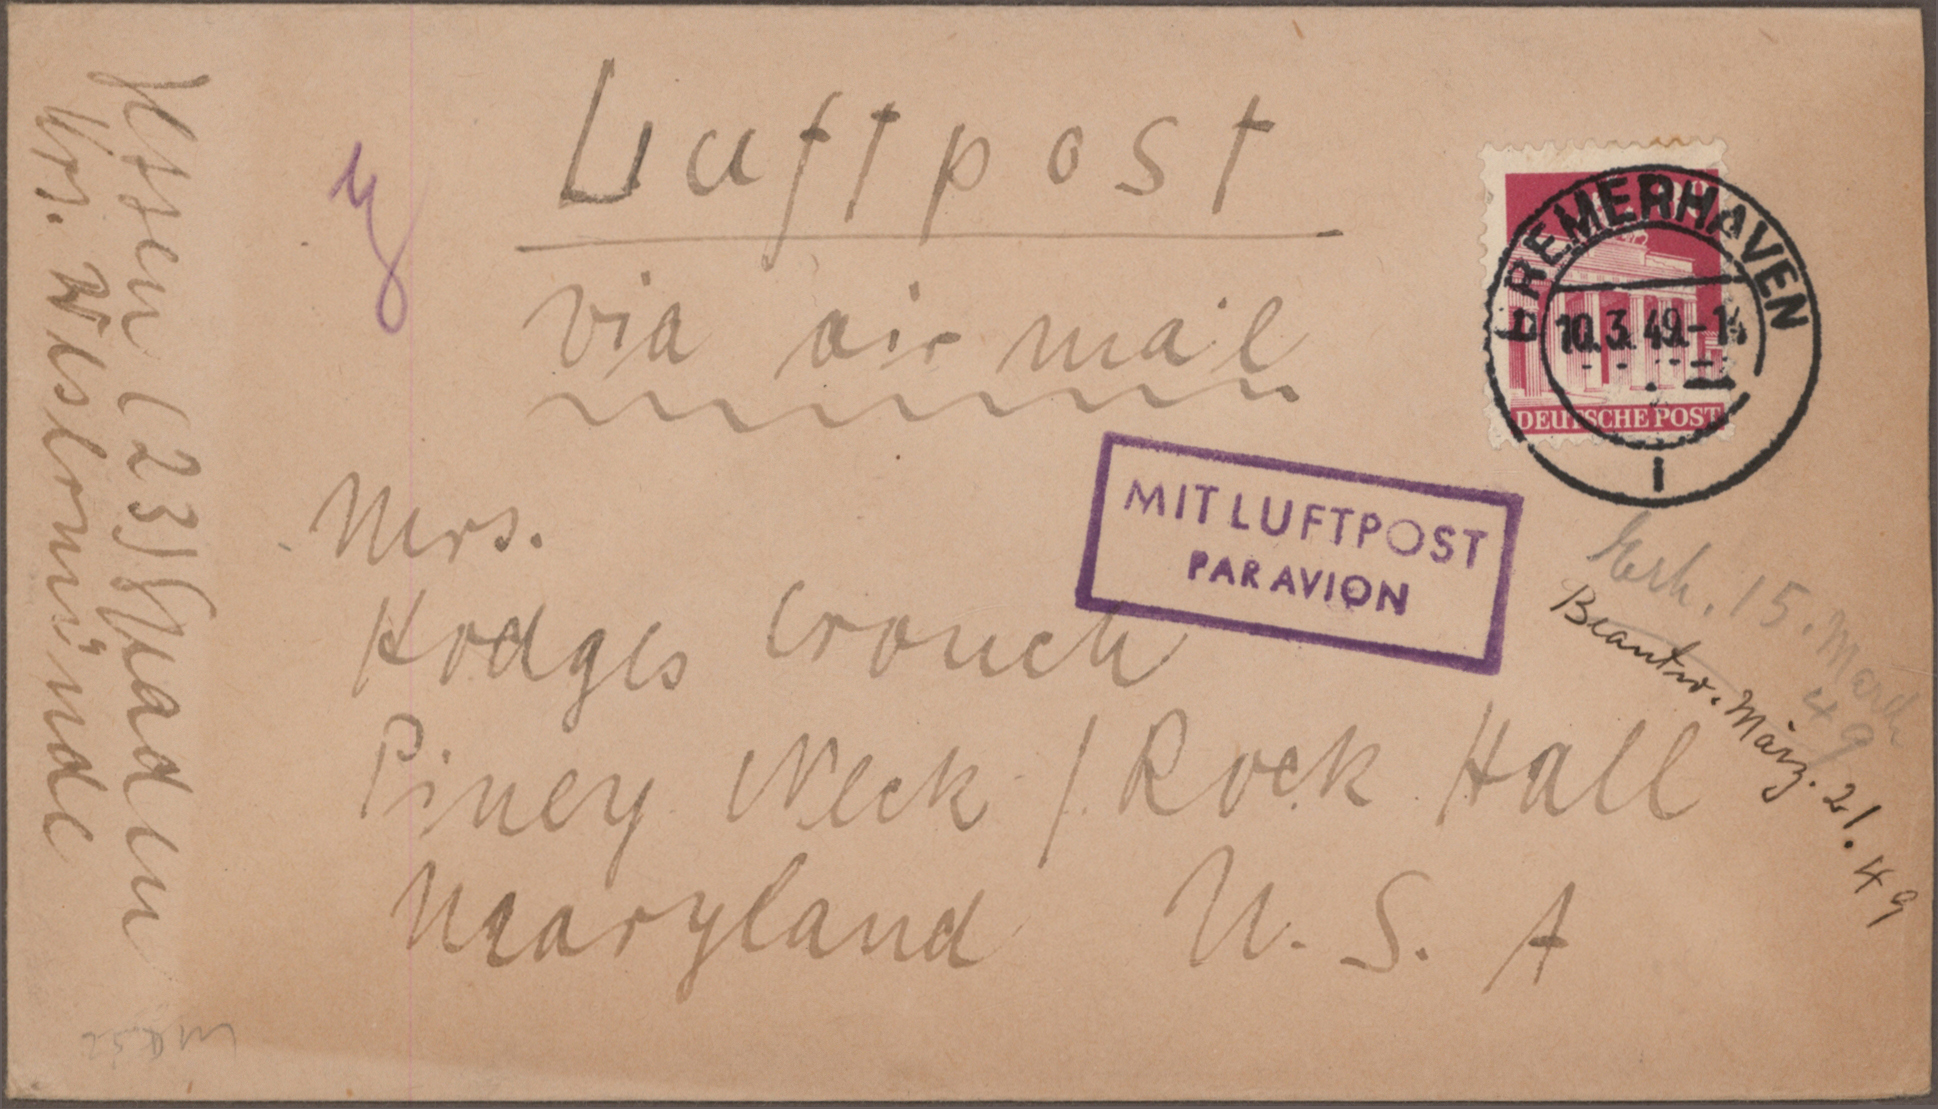 Luftpost
via air mail
BREMERHAVEN
10.3.49.-1
DEUTSCHE POST
MIT LUFTPOST
PAR AVION
Mrs.
Hodges Crouch
Piney Neck / Rock Hall
Maryland U. S. A
Erh. 15. March
49
Beantw. März. 21. 49
(23)
Krs. Wesermünde